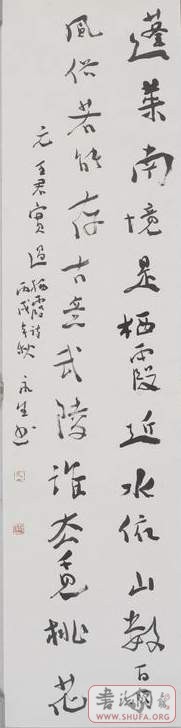 蓬莱南境是栖霞近水依山数百
风俗若能存古意武陵谁

桃花
元王君实过栖霞诗
丙戌年秋永生书
书法网
WWW.SHUFA.ORG